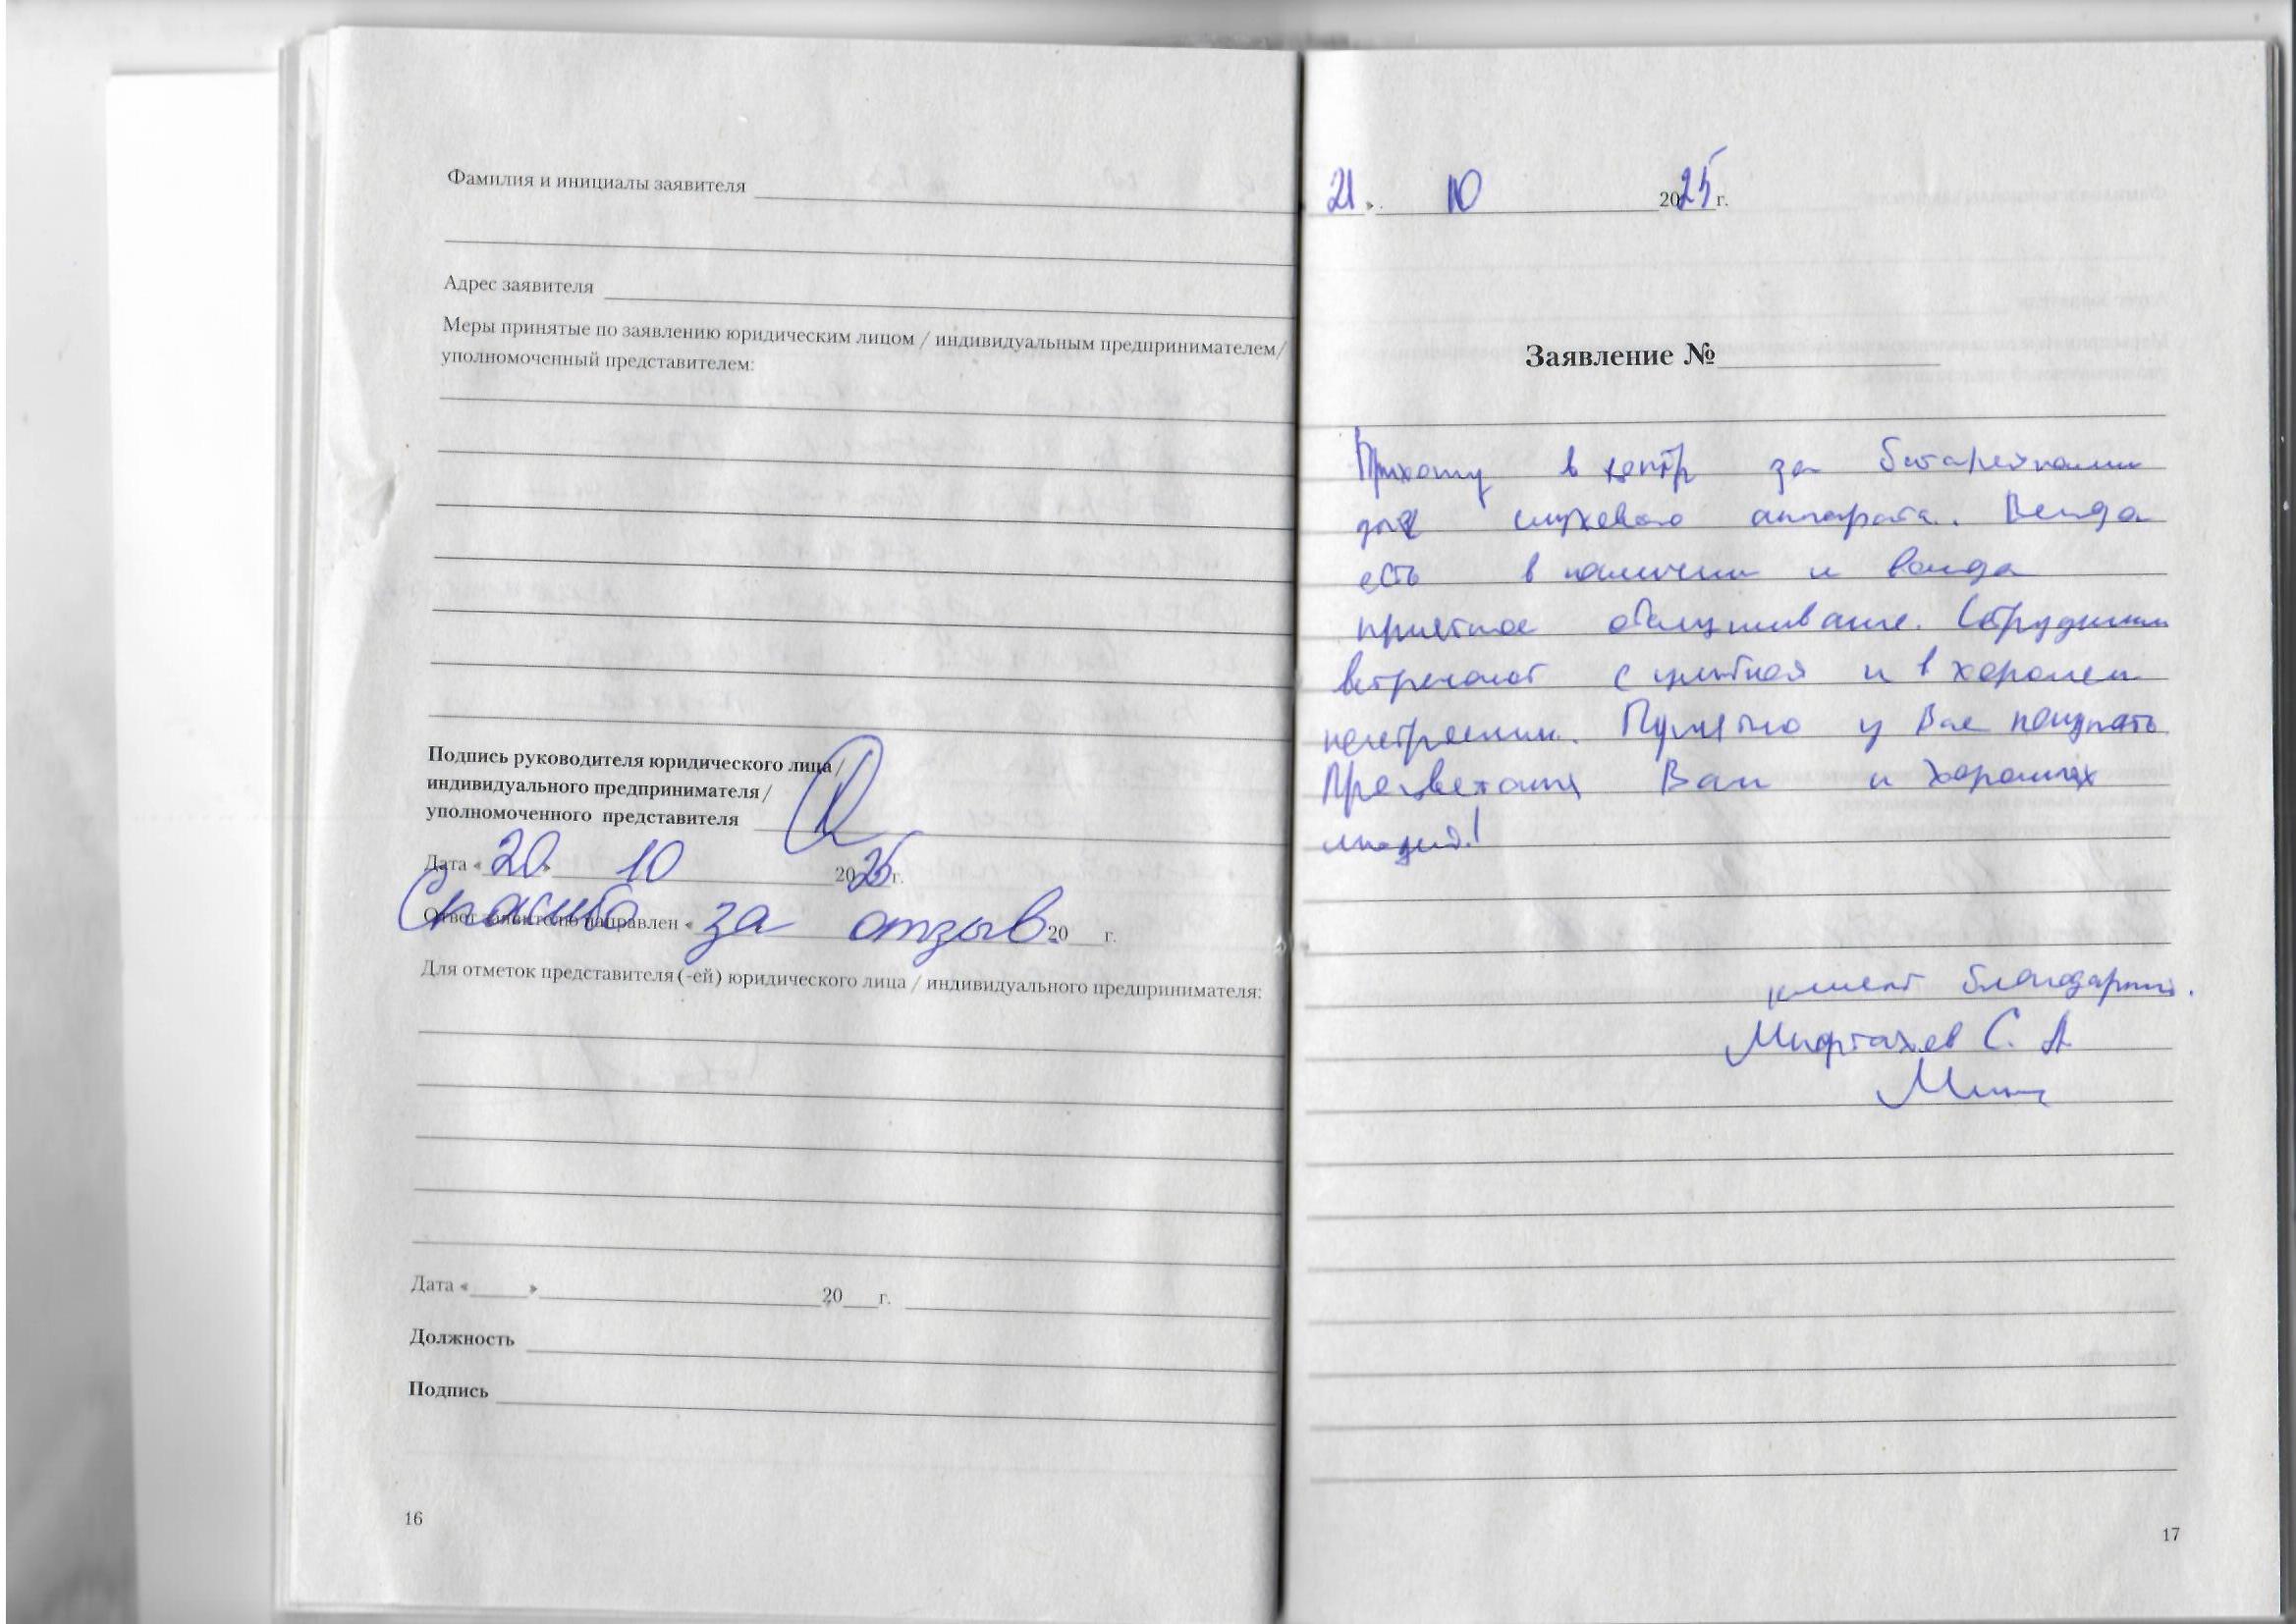 Фамилия и инициалы заявителя
Адрес заявителя
Меры принятые по заявлению юридическим лицом / индивидуальным предпринимателем/
уполномоченный представителем:
Подпись руководителя юридического лица/
индивидуального предпринимателя/
уполномоченного представителя
Дата « 20 » 10 2025 г.
Ответ заявителю направлен « 20 г.
Спасибо за отзыв
Для отметок представителя (-ей) юридического лица / индивидуального предпринимателя:
Дата « » 20 г.
Должность
Подпись
16
21 » 10 2025 г.
Заявление №
Прихожу в центр за батарейками
для слухового аппарата. Всегда
есть в наличии и всегда
приятное обслуживание. Сотрудники
встречают с улыбкой и в хорошем
настроении. Приятно у Вас покупать
Процветания Вам и хороших
людей!
клиент благодарный.
Мифтахов С. А
17